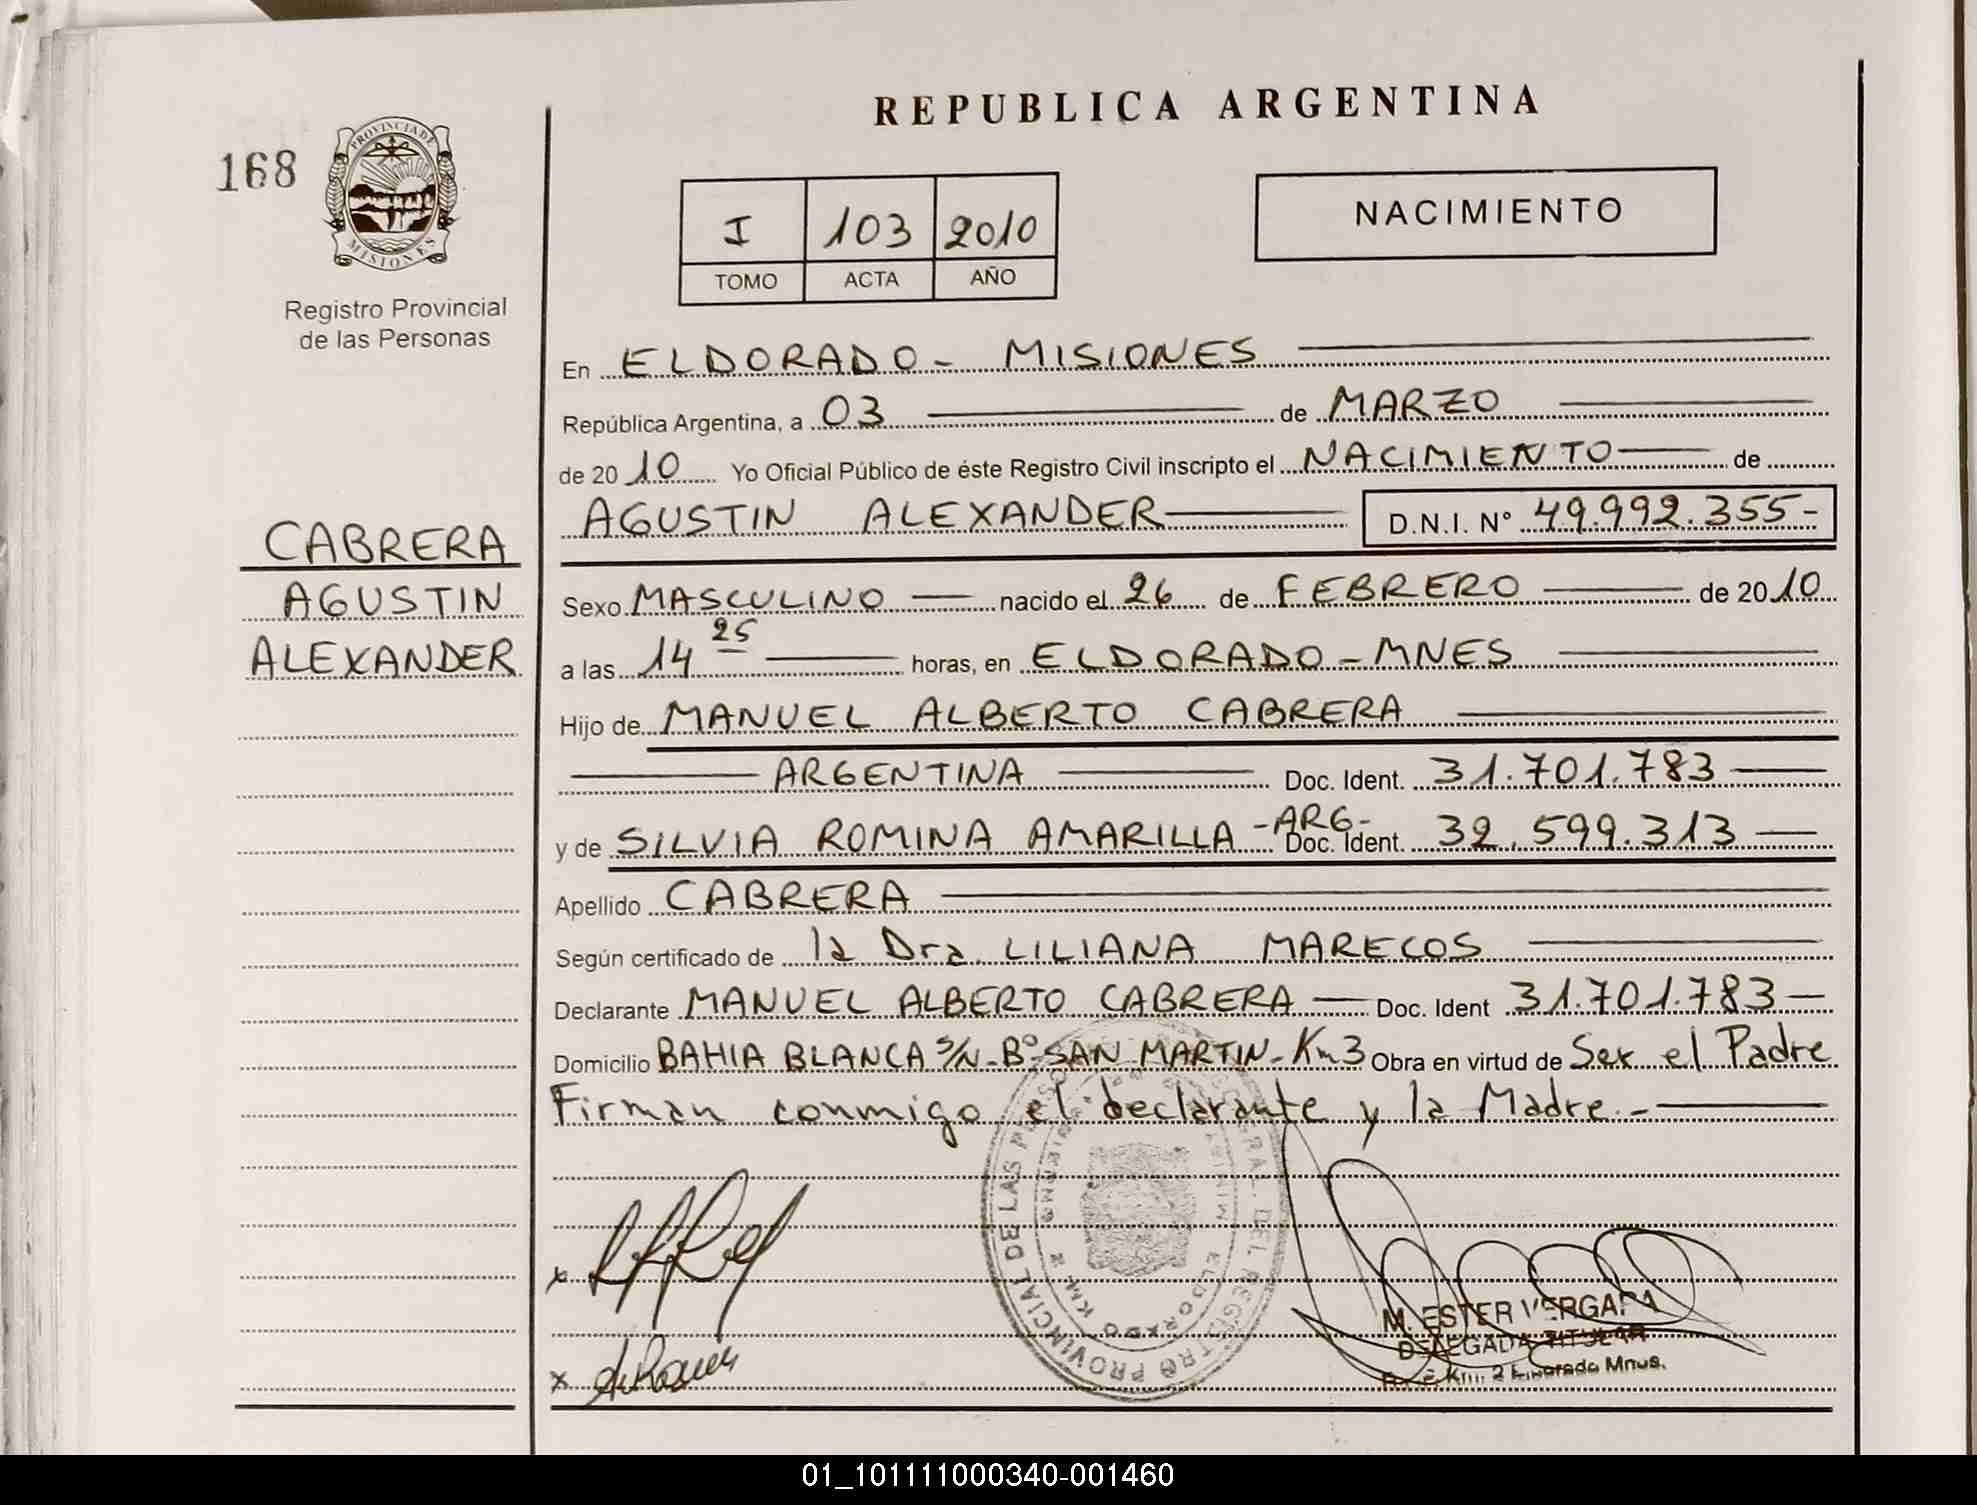 REPUBLICA ARGENTINA
168
PROVINCIA DE
MISIONES
Registro Provincial
de las Personas
I 103 2010
TOMO ACTA AÑO
NACIMIENTO
En ELDORADO - MISIONES
República Argentina, a 03 de MARZO
de 20 10 Yo Oficial Público de éste Registro Civil inscripto el NACIMIENTO de
AGUSTIN ALEXANDER D.N.I. Nº 49.992.355-
CABRERA
AGUSTIN
ALEXANDER
Sexo MASCULINO nacido el 26 de FEBRERO de 2010
a las 14 25 horas, en ELDORADO - MNES
Hijo de MANUEL ALBERTO CABRERA
ARGENTINA Doc. Ident. 31.701.783
y de SILVIA ROMINA AMARILLA -ARG- Doc. Ident. 32.599.313
Apellido CABRERA
Según certificado de la Dra. LILIANA MARECOS
Declarante MANUEL ALBERTO CABRERA Doc. Ident 31.701.783
Domicilio BAHIA BLANCA S/N - Bº SAN MARTIN - Km 3 Obra en virtud de Ser el Padre
Firman conmigo el declarante y la Madre.-
PROVINCIAL DE LAS
DEL REGISTRO
ELDORADO KM. 2
x
x
M. ESTER VERGARA
DELEGADA TITULAR
Km. 2 Eldorado Mnes.
01_101111000340-001460